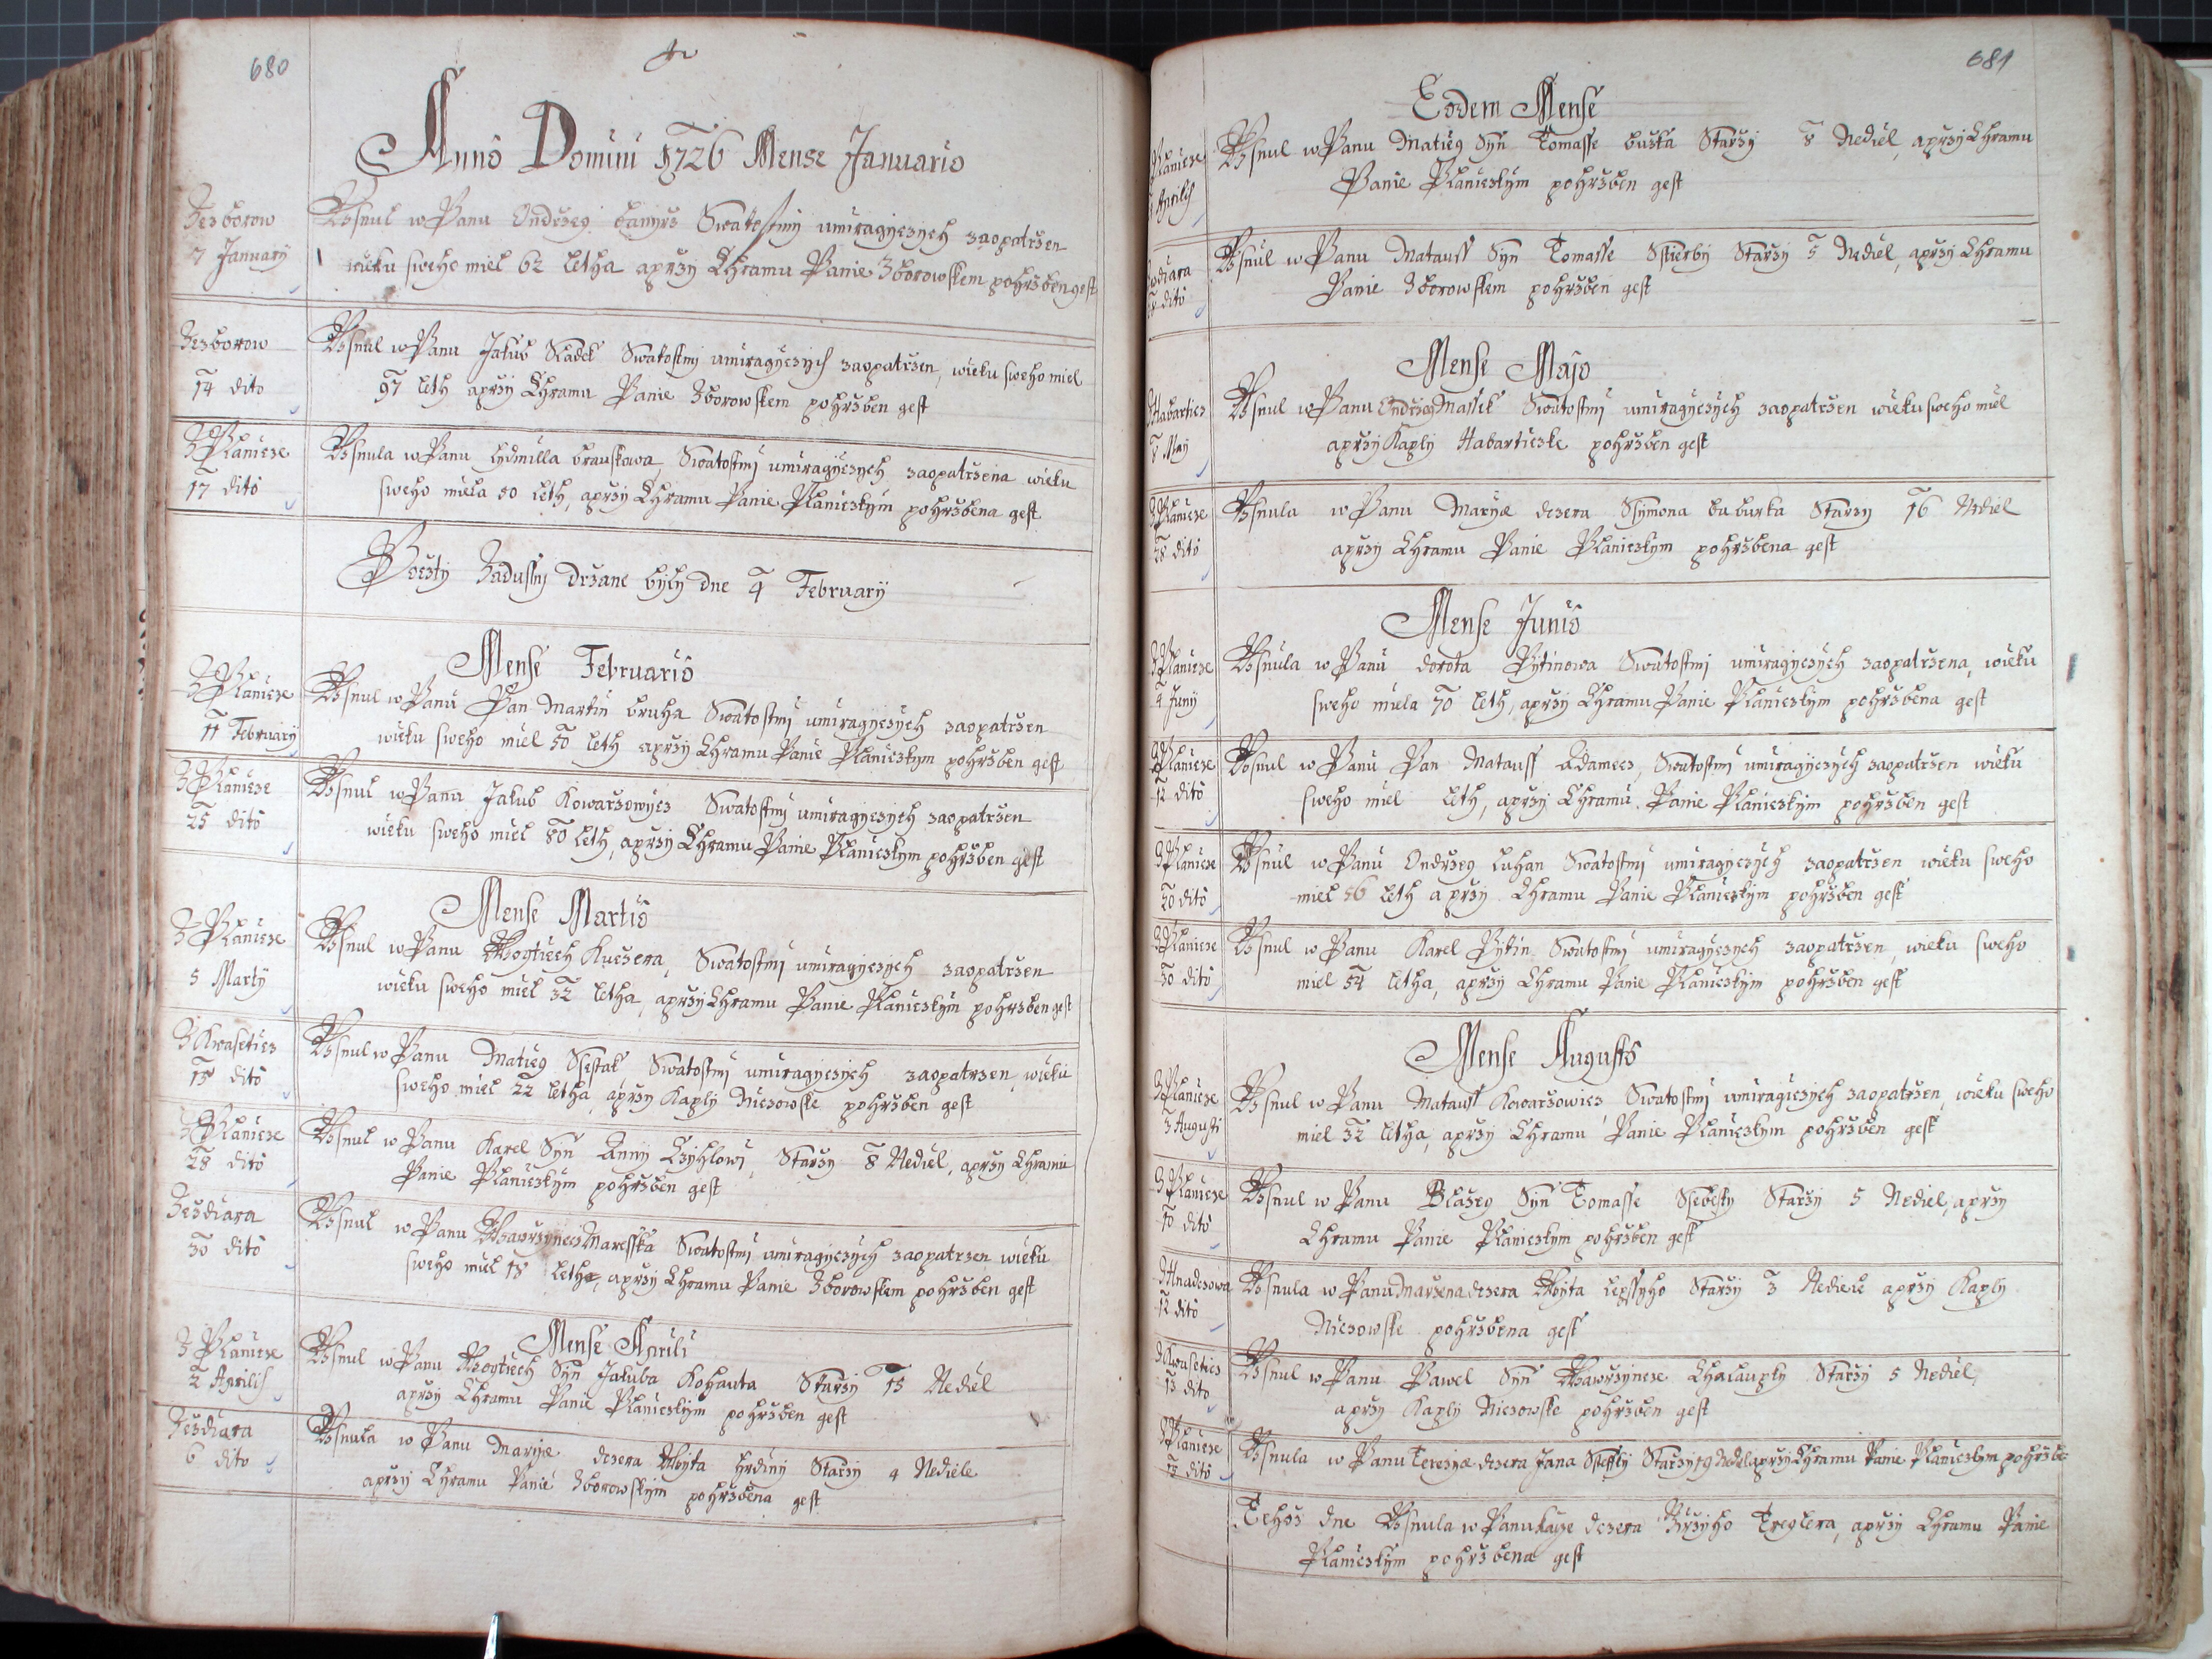 680
Anno Domini 1726 Mense Januario
Zezborow
7 January
Usnul w Panu Ondrzeg Swatostmj umiragyczych zaopatrzen
wieku sweho miel 62 letha a przy Chramu Panie Zborowskem pohrzben gest
Zezborow
14 dito
Usnul w Panu Jakub Sladek Swatostmj umiragyczych zaopatrzen, wieku sweho miel
97 leth a przy Chramu Panie Zborowskem pohrzben gest
Z Planicze
17 dito
Usnula w Panu Lydmilla Swatostmj umiragyczych zaopatrzena wieku
sweho miela 50 leth, a przy Chramu Panie Planiczkym pohrzbena gest
Poczty Zadussnj drzane byly dne 4 February
Mense Februario
Z Planicze
11 February
Usnul w Panu Pan Martin Bruha Swatostmj umiragyczych zaopatrzen
wieku sweho miel 50 leth a przy Chramu Panie Planiczkym pohrzben gest
Z Planicze
25 dito
Usnul w Panu Jakub Kowarzowycz Swatostmj umiragyczych zaopatrzen
wieku sweho miel 80 leth, a przy Chramu Panie Planiczkym pohrzben gest
Mense Martio
Z Planicze
5 Marty
Usnul w Panu Wogtiech Kuczera, Swatostmj umiragyczych zaopatrzen
wieku sweho miel 32 letha, a przy Chramu Panie Planiczkym pohrzben gest
Z Kwaseticz
15 dito
Usnul w Panu Matieg Ssestak Swatostmj umiragyczych zaopatrzen, wieku
sweho miel 22 letha, a przy Kaply Niczowske pohrzben gest
Z Planicze
28 dito
Usnul w Panu Karel Syn Anny Czyhlowi, Starzy 8 Nediel, a przy Chramu
Panie Planiczkym pohrzben gest
Zezdiara
30 dito
Usnul w Panu Wawrzynecz Maresska Swatostmj umiragyczych zaopatrzen wieku
sweho miel 18 leth, a przy Chramu Panie Zborowskem pohrzben gest
Mense Aprili
Z Planicze
2 Aprilis
Usnul w Panu Wogtiech Syn Jakuba Kohauta Starzy 15 Nediel
a przy Chramu Panie Planiczkym pohrzben gest
Zezdiara
6 dito
Usnula w Panu Maryæ dczera Wyta Hrdiny Starzy 4 Nediele
a przy Chramu Panie Zborowskym pohrzbena gest
681
Eodem Mense
Planicze
Aprilis
Usnul w Panu Matieg Syn Tomasse Starzy 8 Nediel, a przy Chramu
Panie Planiczkym pohrzben gest
Zezdiara
dito
Usnul w Panu Matauss Syn Tomasse Sstierby Starzy 5 Nediel, a przy Chramu
Panie Zborowskem pohrzben gest
Mense Majo
Z Habarticz
8 May
Usnul w Panu Ondrzeg Massek Swatostmj umiragyczych zaopatrzen wieku sweho miel
a przy Kaply Habarticzke pohrzben gest
Z Planicze
28 dito
Usnula w Panu Maryæ dczera Ssymona Starzy 16 Nediel
a przy Chramu Panie Planiczkym pohrzbena gest
Mense Junio
Z Planicze
4 Juny
Usnula w Panu Dorota Pytinowa Swatostmj umiragyczych zaopatrzena, wieku
sweho miela 70 leth, a przy Chramu Panie Planiczkym pohrzbena gest
Z Planicze
12 dito
Usnul w Panu Pan Matauss Adamecz, Swatostmj umiragyczych zaopatrzen wieku
sweho miel leth, a przy Chramu Panie Planiczkym pohrzben gest
Z Planicze
20 dito
Usnul w Panu Ondrzeg Luhan Swatostmj umiragyczych zaopatrzen wieku sweho
miel 56 leth a przy Chramu Panie Planiczkym pohrzben gest
Z Planicze
30 dito
Usnul w Panu Karel Pytin Swatostmj umiragyczych zaopatrzen, wieku sweho
miel 54 letha, a przy Chramu Panie Planiczkym pohrzben gest
Mense Augusto
Z Planicze
3 Augusti
Usnul w Panu Matauss Kowarzowicz Swatostmj umiragiczych zaopatrzen, wieku sweho
miel 32 letha, a przy Chramu Panie Planiczkym pohrzben gest
Z Planicze
10 dito
Usnul w Panu Blazeg Syn Tomasse Ssebesty Starzy 5 Nediel, a przy
Chramu Panie Planiczkym pohrzben gest
Z Hnaczowa
12 dito
Usnula w Panu Marzena dczera Wyta Lepssyho Starzy 3 Nediele a przy Kaply
Niczowske pohrzbena gest
Z Kwaseticz
13 dito
Usnul w Panu Pawel Syn Wawrzyncze Chalaupky Starzy 5 Nediel,
a przy Kaply Niczowske pohrzben gest
Z Planicze
15 dito
Usnula w Panu Terezyæ dczera Jana Ssteffly Starzy 19 Nedel a przy Chramu Panie Planiczkym pohrzbe:
Tehoz dne Usnula w Panu dczera Girzyho Treglera, a przy Chramu Panie
Planiczkym pohrzbena gest